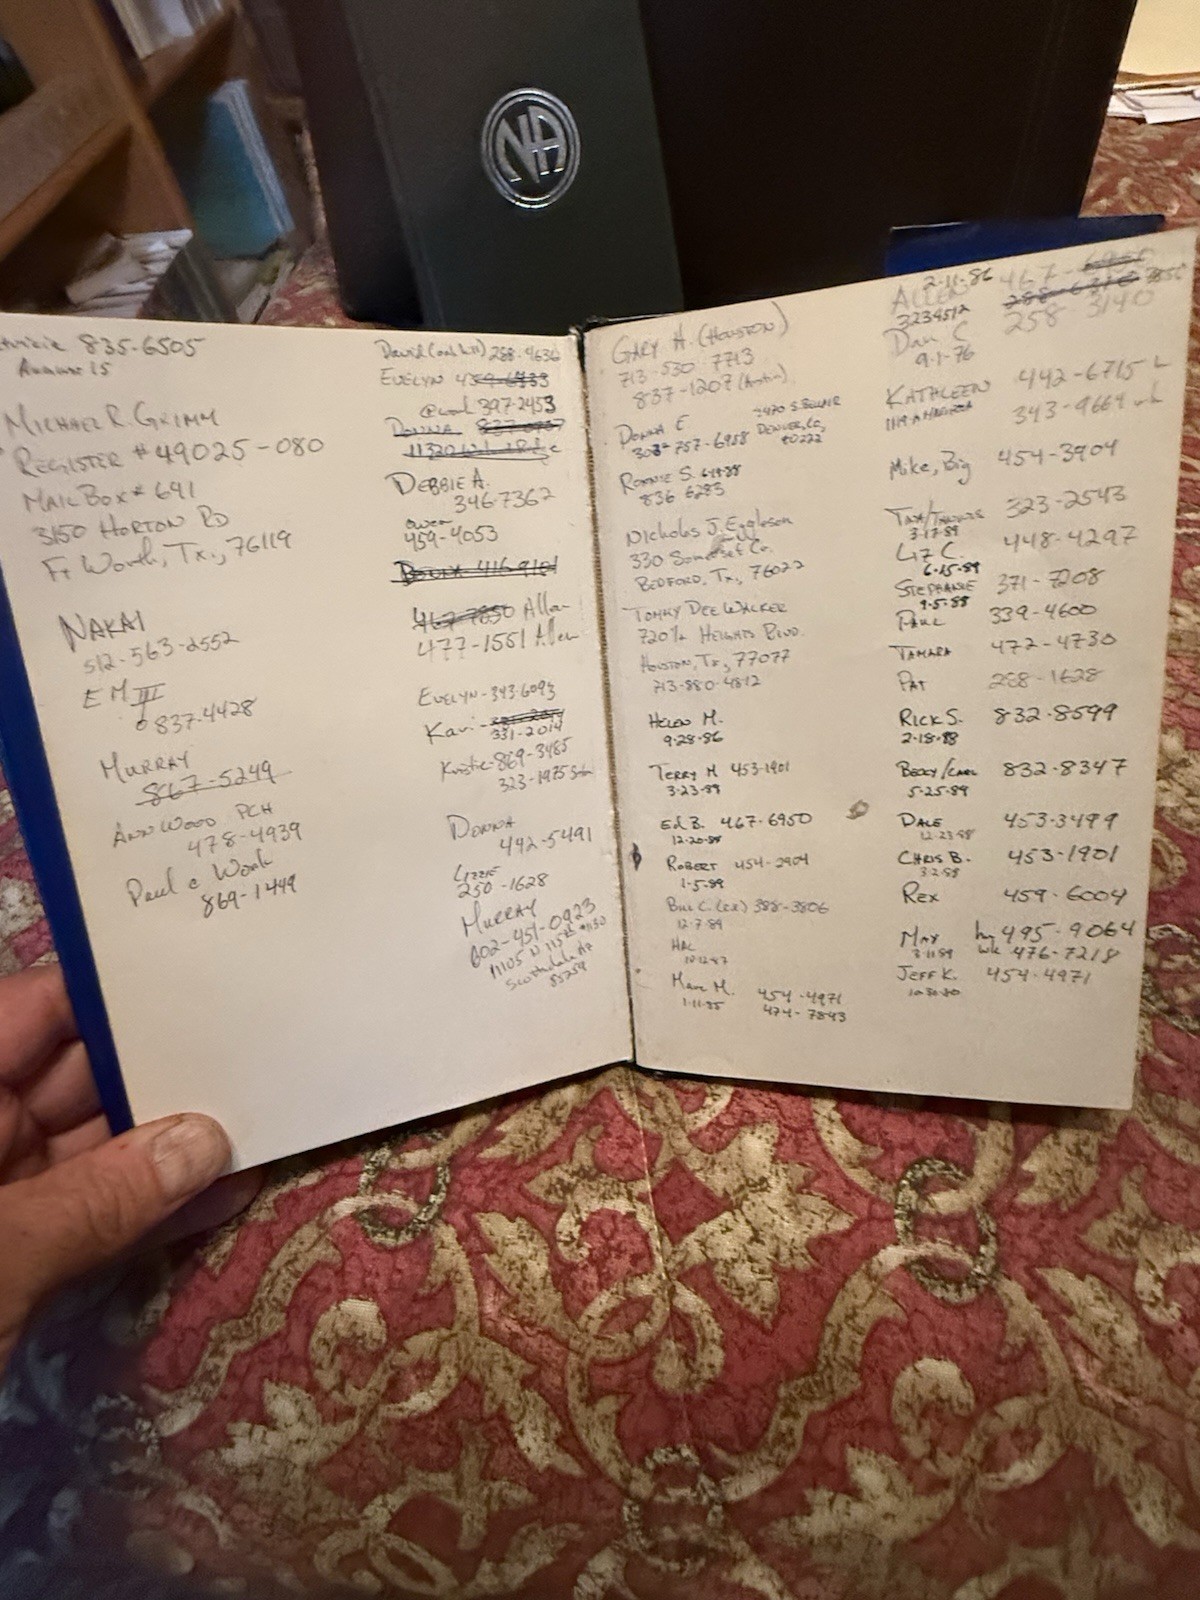 NA
835-6505
August 15
MICHAEL R. GRIMM
REGISTER # 49025-080
MAIL BOX # 641
3150 HORTON RD
Ft Worth, Tx., 76119
NAKAI
512-563-2552
E M III
837-4428
MURRAY
867-5249
ANN WOOD PCH
478-4939
Paul @ Work
869-1449
David 288-4636
EVELYN
@work 397-2453
DONNA
DEBBIE A.
346-7362
owen
459-4053
Allen
477-1551 Allen
EVELYN-343-6093
331-2014
Kristie-869-3485
323-1975
DONNA
442-5491
LIZZIE
250-1628
MURRAY
602-451-0923
11105 N 115th #1130
Scottsdale Az
85259
GARY H. (HOUSTON)
713-530-7713
837-1207 (Austin)
DONNA E
303-757-6958
DENVER, CO,
80222
RONNIE S.
836 6283
Nicholas J. Eggleson
330 Somerset Cir.
BEDFORD, Tx., 76022
TOMMY DEE WALKER
720½ HEIGHTS BLVD.
HOUSTON, Tx, 77077
713-880-4812
HELEN M.
9-28-86
TERRY M 453-1901
3-23-89
Ed B. 467-6950
12-20-88
ROBERT 454-2904
1-5-89
BILL C. (CK) 388-3806
12-7-89
HAL
10-12-87
Marc M. 454-4971
1-11-85 474-7843
2-11-86
ALLEN 467-
3234512
Dan C 258 3140
9-1-76
KATHLEEN 442-6715
343-9664 wk
Mike, Big 454-3904
323-2543
3-17-89
Liz C. 448-4297
6-15-89
STEPHANIE 371-7208
9-5-88
PAUL 339-4600
TAMARA 472-4730
PAT 288-1628
RICK S. 832-8599
2-18-88
BECKY/CARL 832-8347
5-25-89
DALE 453-3499
12-23-88
CHRIS B. 453-1901
3-2-88
REX 459-6004
MAX hm 495-9064
3-11-89 wk 476-7218
JEFF K. 454-4971
10-30-80